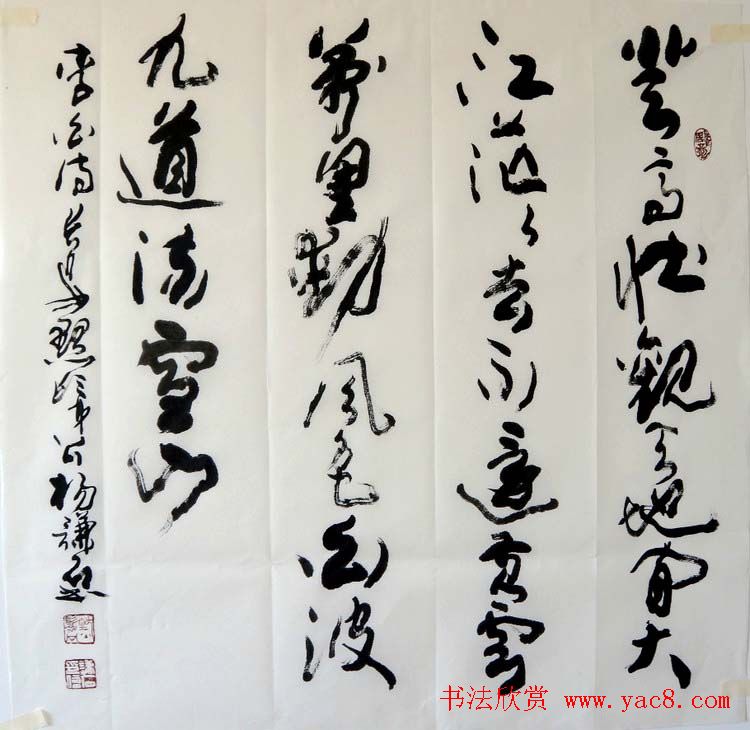 登高壮觀天地間大
江茫々去不還黄雲
萬里動風色白波
九道流雪山
李白诗 杨謙
书法欣赏 www.yac8.com